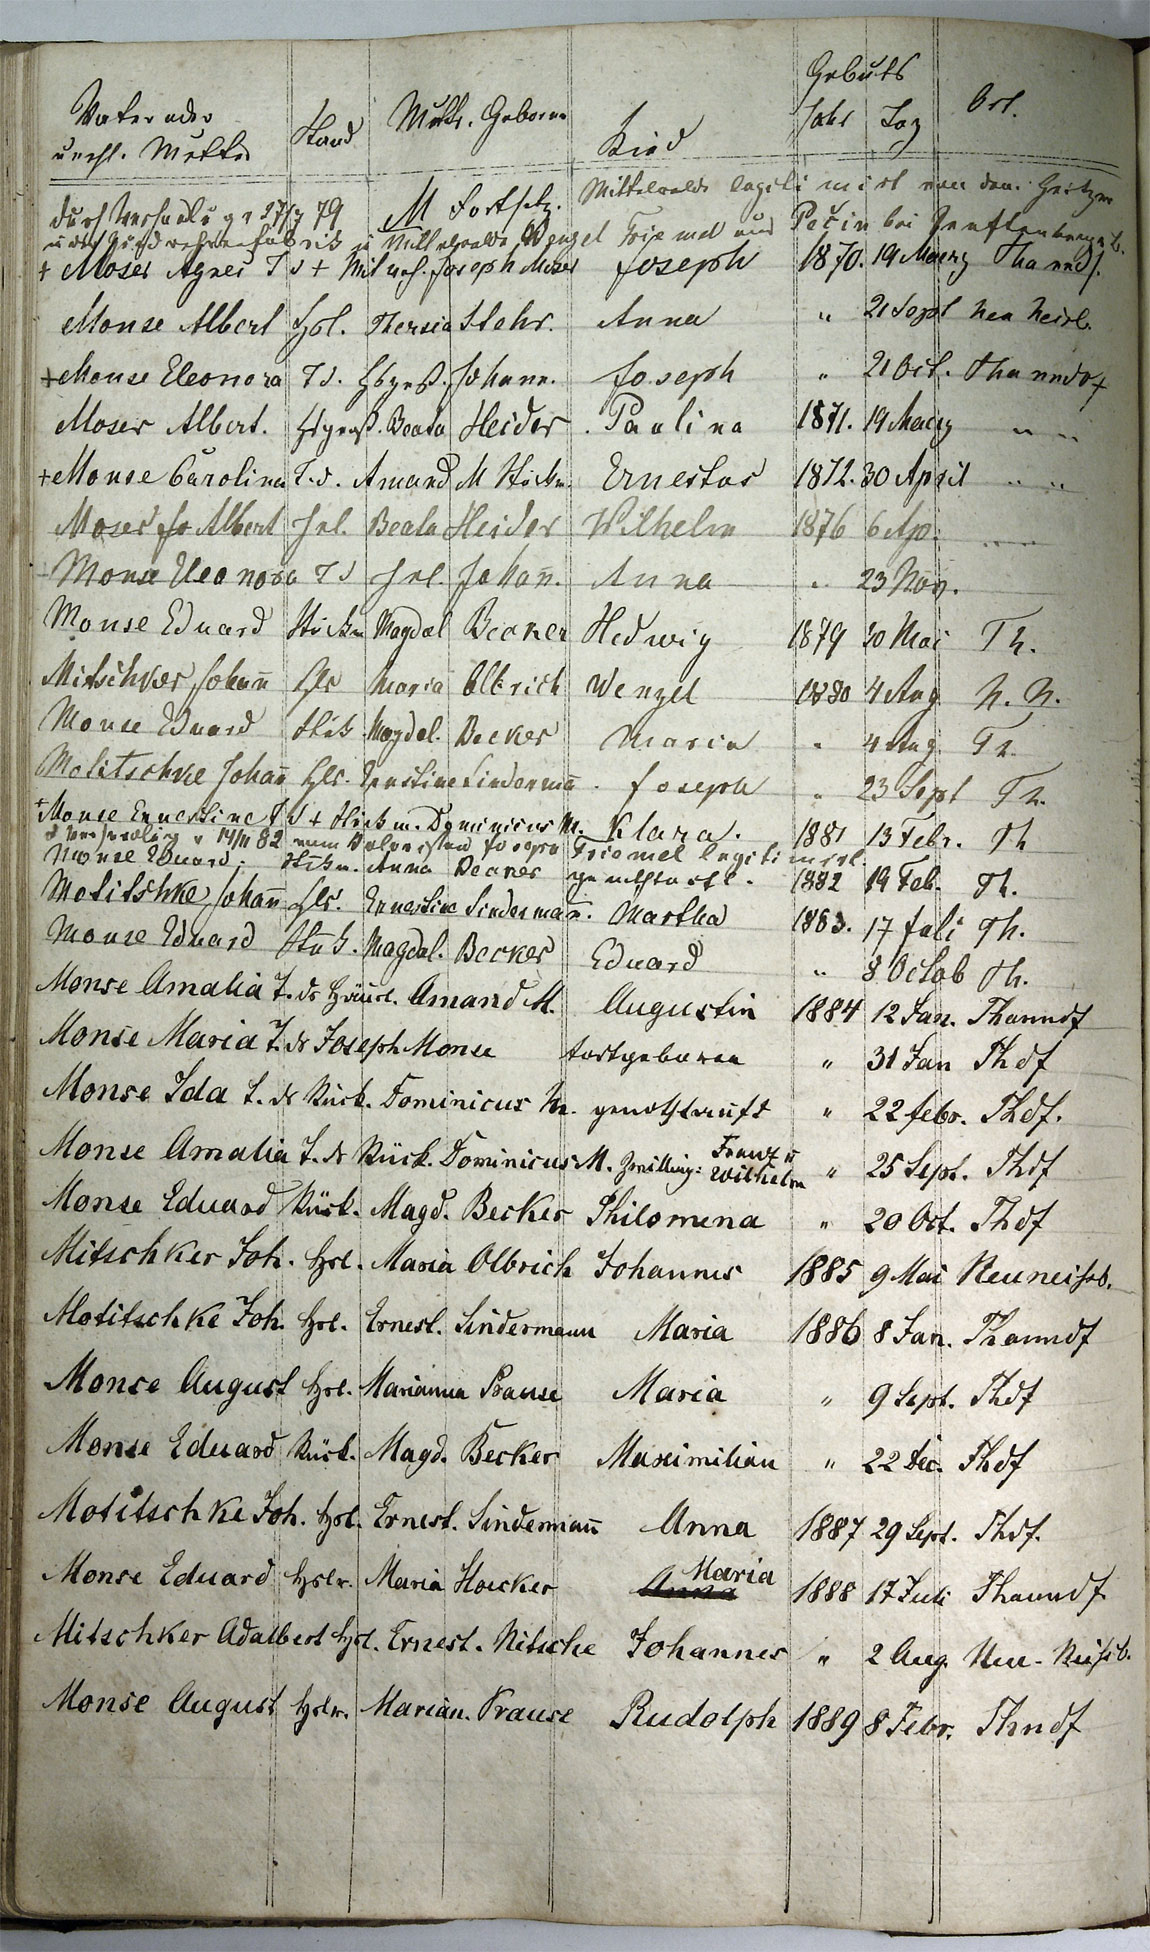 Vater oder
unehl. Mutter Stand Mutt. Geborne Kind Gebuts
Jahr Tag Ort.
durch 27/7 79 M Fortsetz. Mittelwalde legiti mirt von dem
in Mittelwalde Wenzel Friemel aus Pečin bei
+ Moser Agnes T d + Joseph Moser Joseph 1870. 19 Maerz Thanndf.
Monse Albert Hsl. Thersia Stehr. Anna " 21 Sept Neu Neisb.
+ Monse Eleonora T d. Johann. Joseph " 21 Oct. Thanndof
Moser Albert. Beata Heider. Paulina 1871. 19 Maerz " "
+ Monse Carolina T. d. Amand M Ernestus 1872. 30 April " "
Moser Albert Hsl. Beata Heider Wilhelm 1876 6 Ap. " "
Monse Eleonora T d Hsl. Johan̄. Anna " 23 Nov.
Monse Eduard Stückm Magdal Becker Hedwig 1879 30 Mai Th.
Mitschker Johan̄ Hlr Maria Olbrich Wenzel 1880 4 Aug N. N.
Monse Eduard Stük Magdal. Becker Maria " 4 Aug. Th.
Motitschke Johan̄ Hlr. Ernstine Sinderman̄. Joseph " 23 Sept Th.
+ Monse Ernestine T d + Stückm. Dominicus M. Klara. 1881 13 Febr. Th
14/11 82 vom Joseph Friemel legitimirt.
Monse Eduard. Stükm. Anna Becker genothtauft. 1882 19 Feb. Th.
Motitschke Johan̄ Hlr. Ernestine Sinderman̄. Martha 1883. 17 Juli Th.
Monse Eduard Stük. Magdal. Becker Eduard " 8 Octob Th.
Monse Amalia T. ds Häusl. Amand M. Augustin 1884 12 Jan. Thanndf
Monse Maria T. ds Joseph Monse totgeboren " 31 Jan Thdf
Monse Ida T. ds Rück. Dominicus M. genothtauft " 22 febr. Thdf.
Monse Amalia T. ds Rück. Dominicus M. Zwillinge: Franz u Wilhelm " 25 Sept. Thdf
Monse Eduard Rück. Magd. Becker Philomena " 20 Oct. Thdf
Mitschker Joh. Hsl. Maria Olbrich Johannes 1885 9 Mai Neuneisb.
Motitschke Joh. Hsl. Ernest. Sindermann Maria 1886 8 Jan. Thanndf
Monse August Hsl. Marianna Prause Maria " 9 Sept. Thdf
Monse Eduard Rück. Magd. Becker Maximilian " 22 Dec. Thdf
Motitschke Joh. Hsl. Ernest. Sinderman̄ Anna 1887 29 Sept. Thdf.
Monse Eduard Hslr. Maria Hoecker Anna Maria 1888 17 Juli Thanndf
Mitschker Adalbert Hsl. Ernest. Nitsche Johannes " 2 Aug. Neu-Neisb.
Monse August Hslr. Marian. Prause Rudolph 1889 8 Febr. Thndf